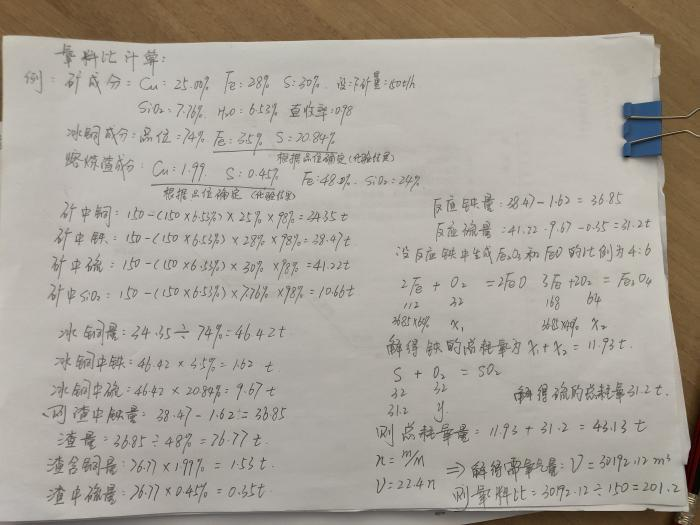 氧料比计算:
例: 矿成分: Cu: 25.00% Fe: 28% S: 30%. 设:下矿量:150t/h
SiO₂: 7.76%. H₂O: 6.53% 直收率:0.98
冰铜成分: 品位: 74% Fe: 3.5% S: 20.84%
根据品位确定 (化验结果)
熔炼渣成分: Cu: 1.99. S: 0.45% Fe: 48.0%. SiO₂: 24%
根据品位确定 (化验结果)
矿中铜: 150-(150×6.53%)×25%×98%=34.35t
矿中铁: 150-(150×6.53%)×28%×98%=38.47t
矿中硫: 150-(150×6.53%)×30%×98%=41.22t
矿中SiO₂: 150-(150×6.53%)×7.76%×98%=10.66t
冰铜量: 34.35÷74%=46.42t.
冰铜中铁: 46.42×3.5%=1.62t
冰铜中硫: 46.42×20.84%=9.67t
则渣中铁量: 38.47-1.62=36.85
渣量: 36.85÷48%=76.77t.
渣含铜量: 76.77×1.99%=1.53t.
渣中硫量: 76.77×0.45%=0.35t
反应铁量: 38.47-1.62=36.85
反应硫量: 41.22-9.67-0.35=31.2t
设反应铁中生成Fe₃O₄和FeO的比例为4:6
2Fe + O₂ =2FeO 3Fe+2O₂=Fe₃O₄
112 32 168 64
36.85×60% X₁ 36.85×40% X₂
解得铁的总耗氧为X₁+X₂=11.93t.
S + O₂ = SO₂
32 32 解得硫的总耗氧31.2t.
31.2 y
则总耗氧量: 11.93+31.2=43.13t
n=m/M ⇒解得需氧气量: V=30192.12m³
V=22.4n 则氧料比=30192.12÷150=201.2